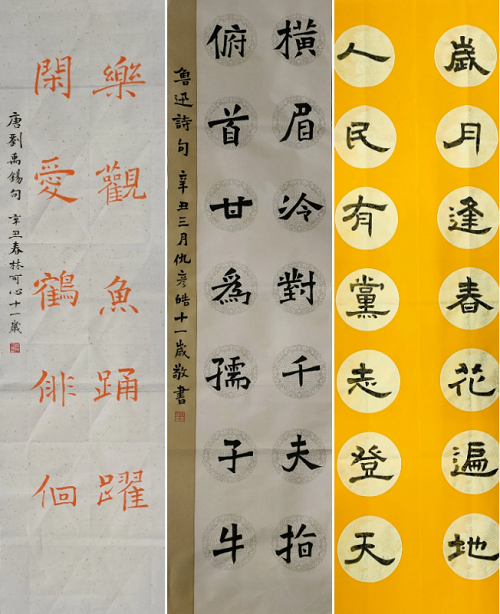 樂觀魚踊躍
閑愛鶴俳徊
唐劉禹錫句 辛丑春林可心十一歲
橫眉冷對千夫指
俯首甘為孺子牛
魯迅詩句 辛丑三月仇彥皓十一歲敬書
歲月逢春花遍地
人民有黨志登天